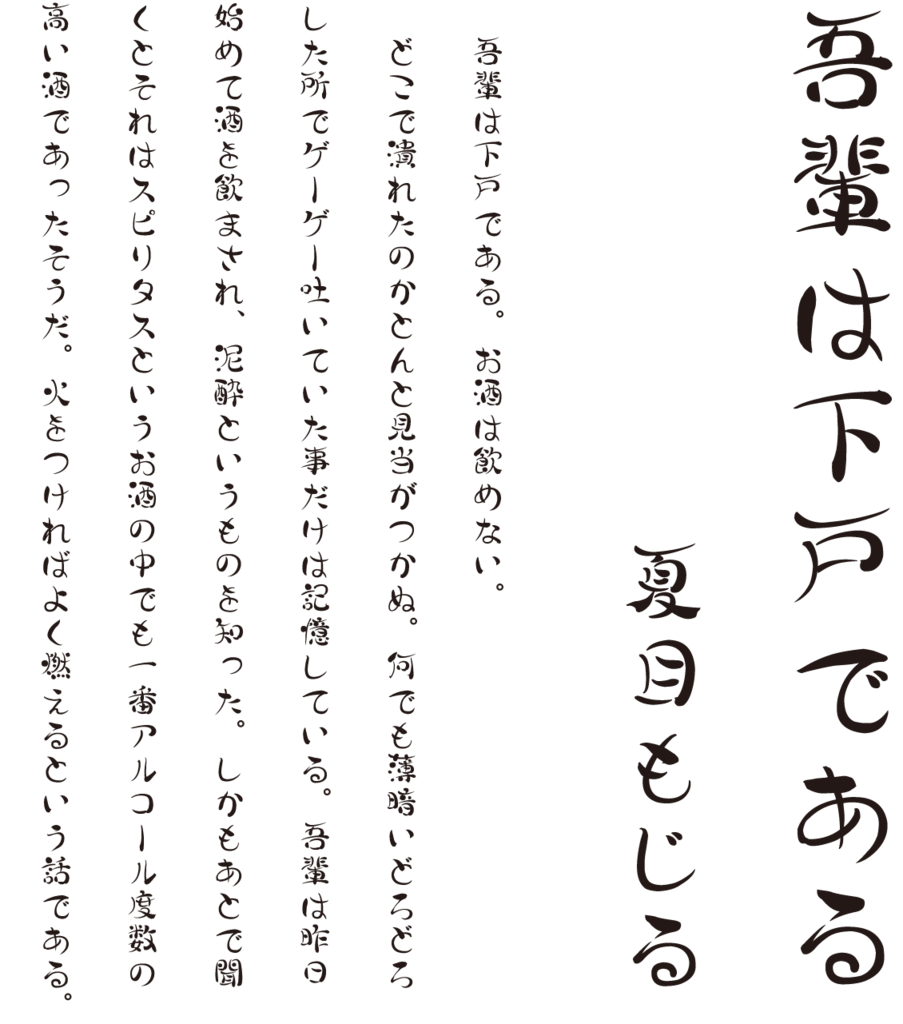 吾輩は下戸である
夏目もじる
吾輩は下戸である。お酒は飲めない。
どこで潰れたのかとんと見当がつかぬ。何でも薄暗いどろどろ
した所でゲーゲー吐いていた事だけは記憶している。吾輩は昨日
始めて酒を飲まされ、泥酔というものを知った。しかもあとで聞
くとそれはスピリタスというお酒の中でも一番アルコール度数の
高い酒であったそうだ。火をつければよく燃えるという話である。